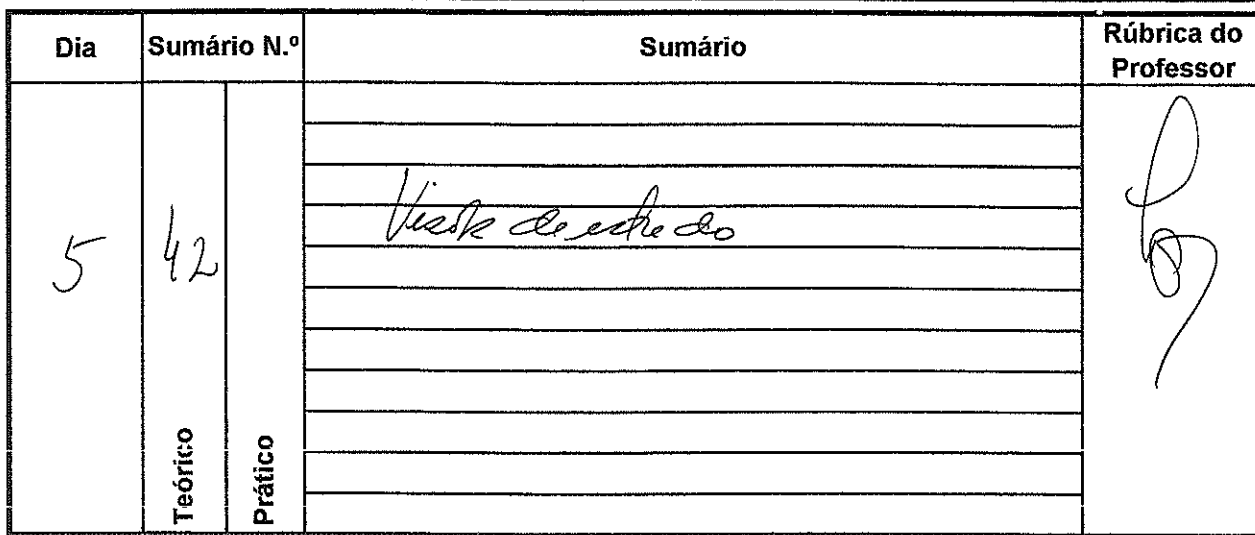 Dia Sumário N.º Sumário Rúbrica do Professor
5 42 Visita de estudo
Teórico Prático